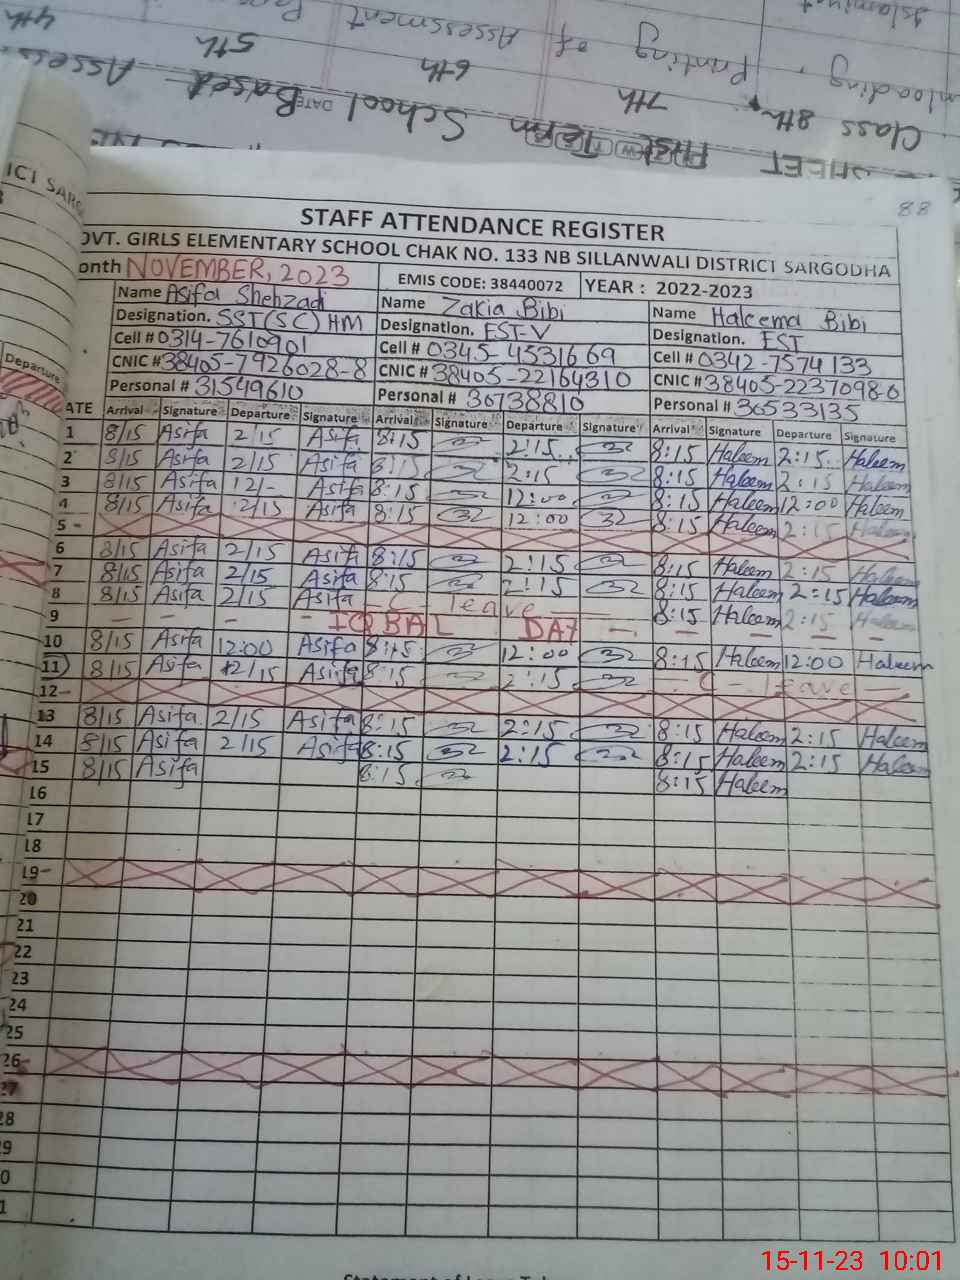 Islamiyat
Assessment
of
Printing
4th
5th
6th
7th
Class 8th
School Based Assess
DATE
First Term
SHEET
88
ICT SARG
STAFF ATTENDANCE REGISTER
OVT. GIRLS ELEMENTARY SCHOOL CHAK NO. 133 NB SILLANWALI DISTRICT SARGODHA
onth NOVEMBER, 2023 EMIS CODE: 38440072 YEAR : 2022-2023
Name Asifa Shehzadi Name Zakia Bibi Name Haleema Bibi
Designation. SST(SC) HM Designation. EST-V Designation. EST
Cell # 0314-7610901 Cell # 0345-4531669 Cell # 0342-7574133
CNIC # 38405-7926028-8 CNIC # 38405-22164310 CNIC # 38405-2237098-0
Personal # 31549610 Personal # 30738810 Personal # 30533135
Departure
ATE Arrival Signature Departure Signature Arrival Signature Departure Signature Arrival Signature Departure Signature
1 8/15 Asifa 2/15 Asifa 8:15 2:15 8:15 Haleem 2:15 Haleem
2 8/15 Asifa 2/15 Asifa 8:15 2:15 8:15 Haleem 2:15 Haleem
3 8/15 Asifa 12/- Asifa 8:15 12:00 8:15 Haleem 12:00 Haleem
4 8/15 Asifa 2/15 Asifa 8:15 12:00 8:15 Haleem 2:15 Haleem
5 -
6 8/15 Asifa 2/15 Asifa 8:15 2:15 8:15 Haleem 2:15 Haleem
7 8/15 Asifa 2/15 Asifa 8:15 2:15 8:15 Haleem 2:15 Haleem
8 8/15 Asifa 2/15 Asifa - C - leave - 8:15 Haleem 2:15 Haleem
9 - - - - IQBAL DAY - - - - -
10 8/15 Asifa 12:00 Asifa 8:15 12:00 8:15 Haleem 12:00 Haleem
11) 8/15 Asifa 2/15 Asifa 8:15 2:15 - C - leave -
12 -
13 8/15 Asifa 2/15 Asifa 8:15 2:15 8:15 Haleem 2:15 Haleem
14 8/15 Asifa 2/15 Asifa 8:15 2:15 8:15 Haleem 2:15 Haleem
15 8/15 Asifa 8:15 8:15 Haleem
16
17
18
19 -
20
21
22
23
24
25
26 -
27
28
9
0
1
15-11-23 10:01